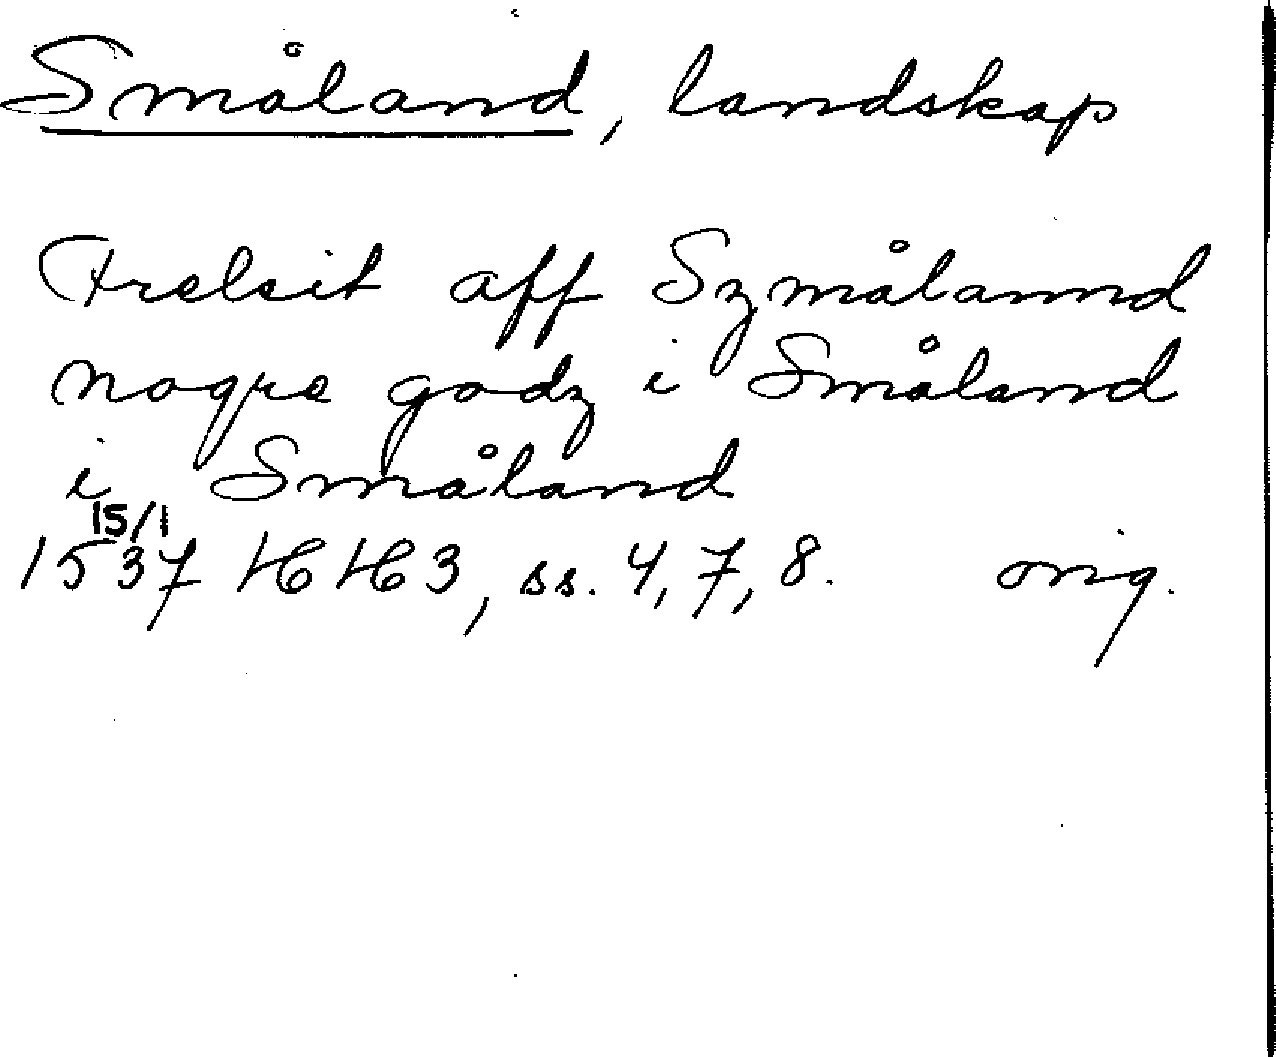 Småland, landskap
Frelsit aff Szmålannd
nogre godz i Småland
i Småland
15/1
1537 HH3, ss. 4, 7, 8. orig.